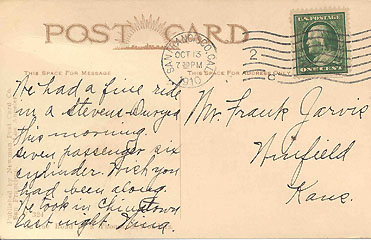 POST CARD
THIS SPACE FOR MESSAGE
THIS SPACE FOR ADDRESS ONLY
SAN FRANCISCO, CAL.
OCT 13
7-PM
1910
2
U.S. POSTAGE
ONE CENT
We had a fine ride
in a Stevens-Duryea
this morning.
seven passenger six
cylinder. Wish you
had been along.
We took in Chinatown
last night. Nina.
Mr. Frank Jarvis
Winfield
Kans.
Published by Newman Post Card Co.